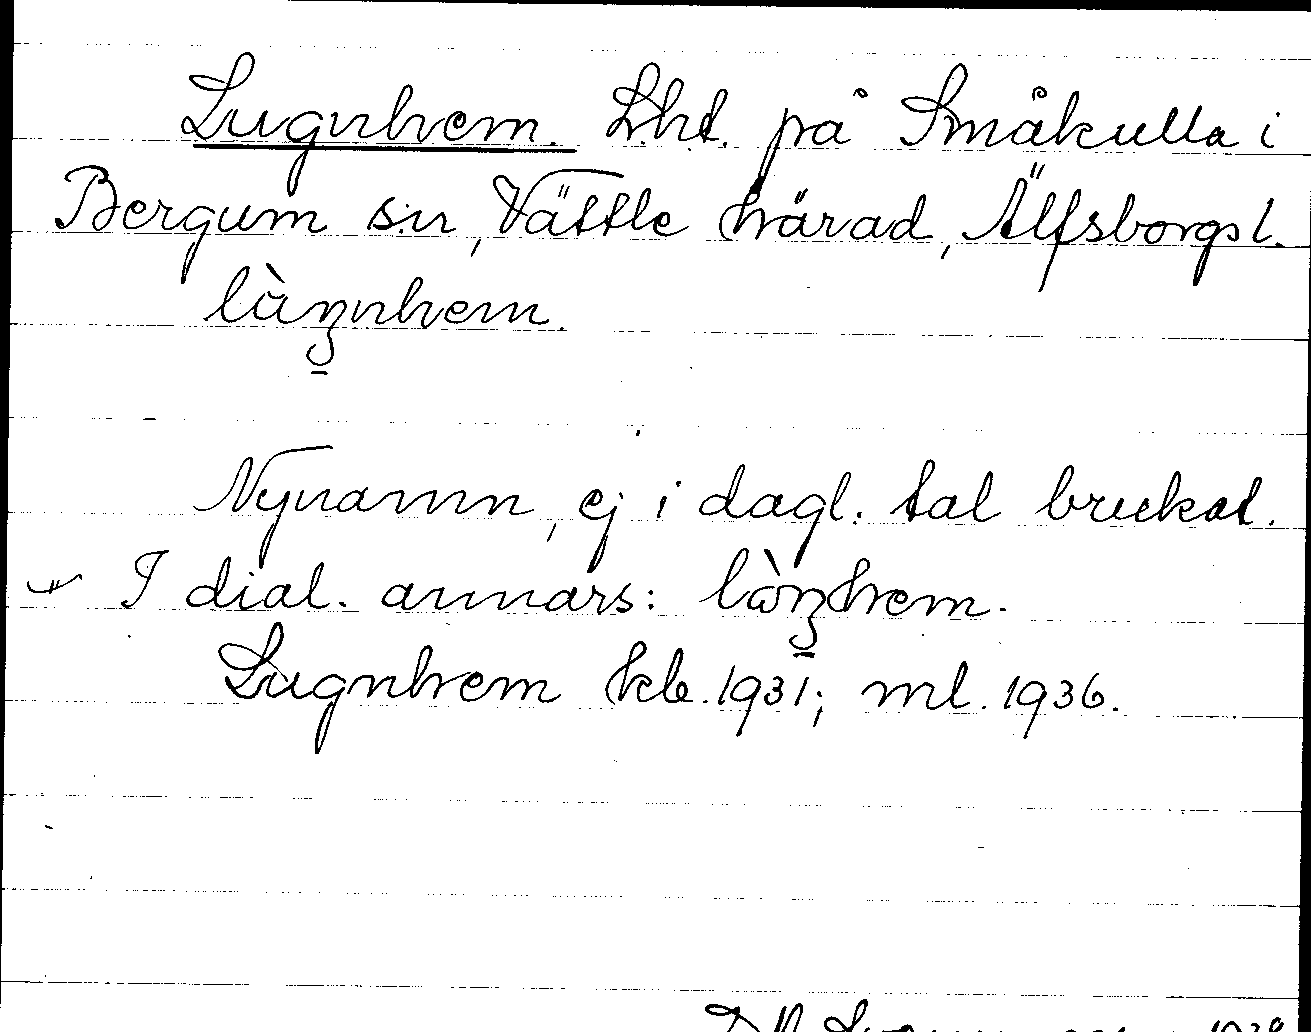 Lugnhem. Lht. på Småkulla i
Bergum sn, Vättle härad, Älfsborgs l.
lùgnhem.
Nynamn, ej i dagl. tal brukat.
I dial. annars: lòŋhem.
Lugnhem kb. 1931; ml. 1936.